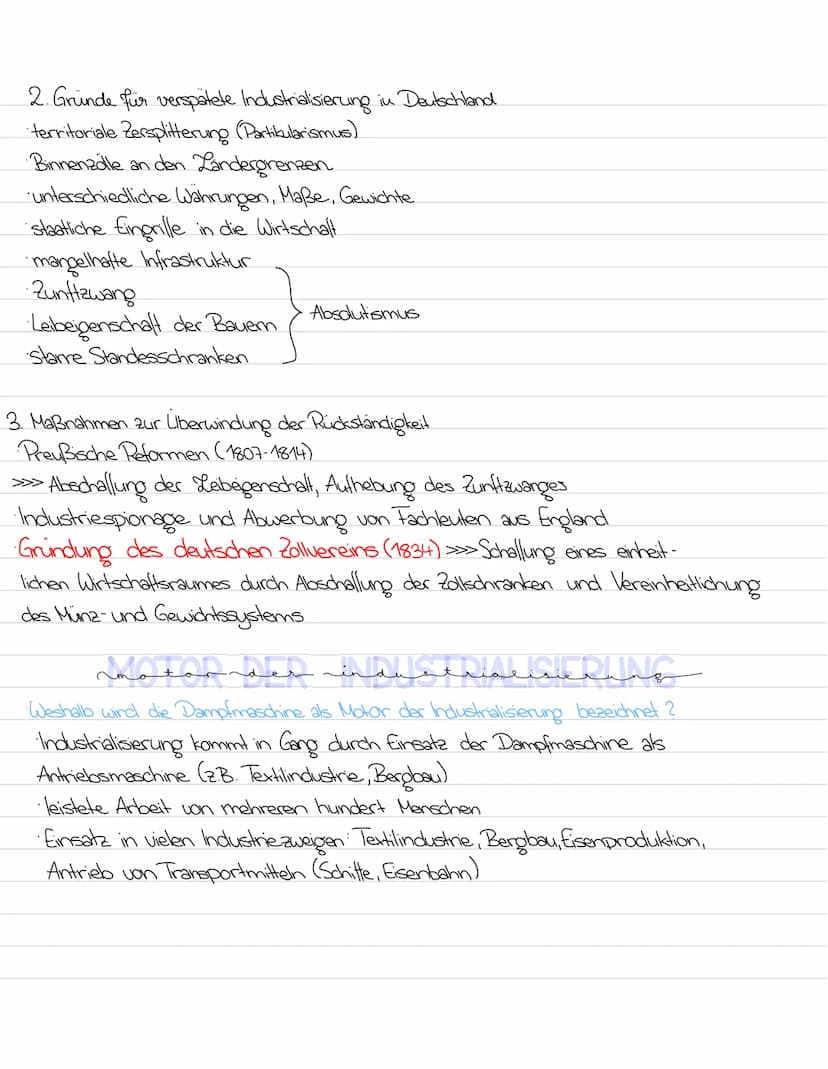 2. Gründe für verspätete Industrialisierung in Deutschland
· territoriale Zersplitterung (Partikularismus)
· Binnenzölle an den Ländergrenzen
· unterschiedliche Währungen, Maße, Gewichte
· staatliche Eingriffe in die Wirtschaft
· mangelhafte Infrastruktur
· Zunftzwang
· Leibeigenschaft der Bauern
Absolutismus
· starre Standesschranken
3. Maßnahmen zur Überwindung der Rückständigkeit
· Preußische Reformen (1807-1814)
>>> Abschaffung der Leibeigenschaft, Aufhebung des Zunftzwanges
· Industriespionage und Abwerbung von Fachleuten aus England
· Gründung des deutschen Zollvereins (1834) >>> Schaffung eines einheit-
lichen Wirtschaftsraumes durch Abschaffung der Zollschranken und Vereinheitlichung
des Münz- und Gewichtssystems
MOTOR DER INDUSTRIALISIERUNG
motor der industrialisierung
Weshalb wird die Dampfmaschine als Motor der Industrialisierung bezeichnet?
· Industrialisierung kommt in Gang durch Einsatz der Dampfmaschine als
Antriebsmaschine (z.B. Textilindustrie, Bergbau)
· leistete Arbeit von mehreren hundert Menschen
· Einsatz in vielen Industriezweigen: Textilindustrie, Bergbau, Eisenproduktion,
Antrieb von Transportmitteln (Schiffe, Eisenbahn)